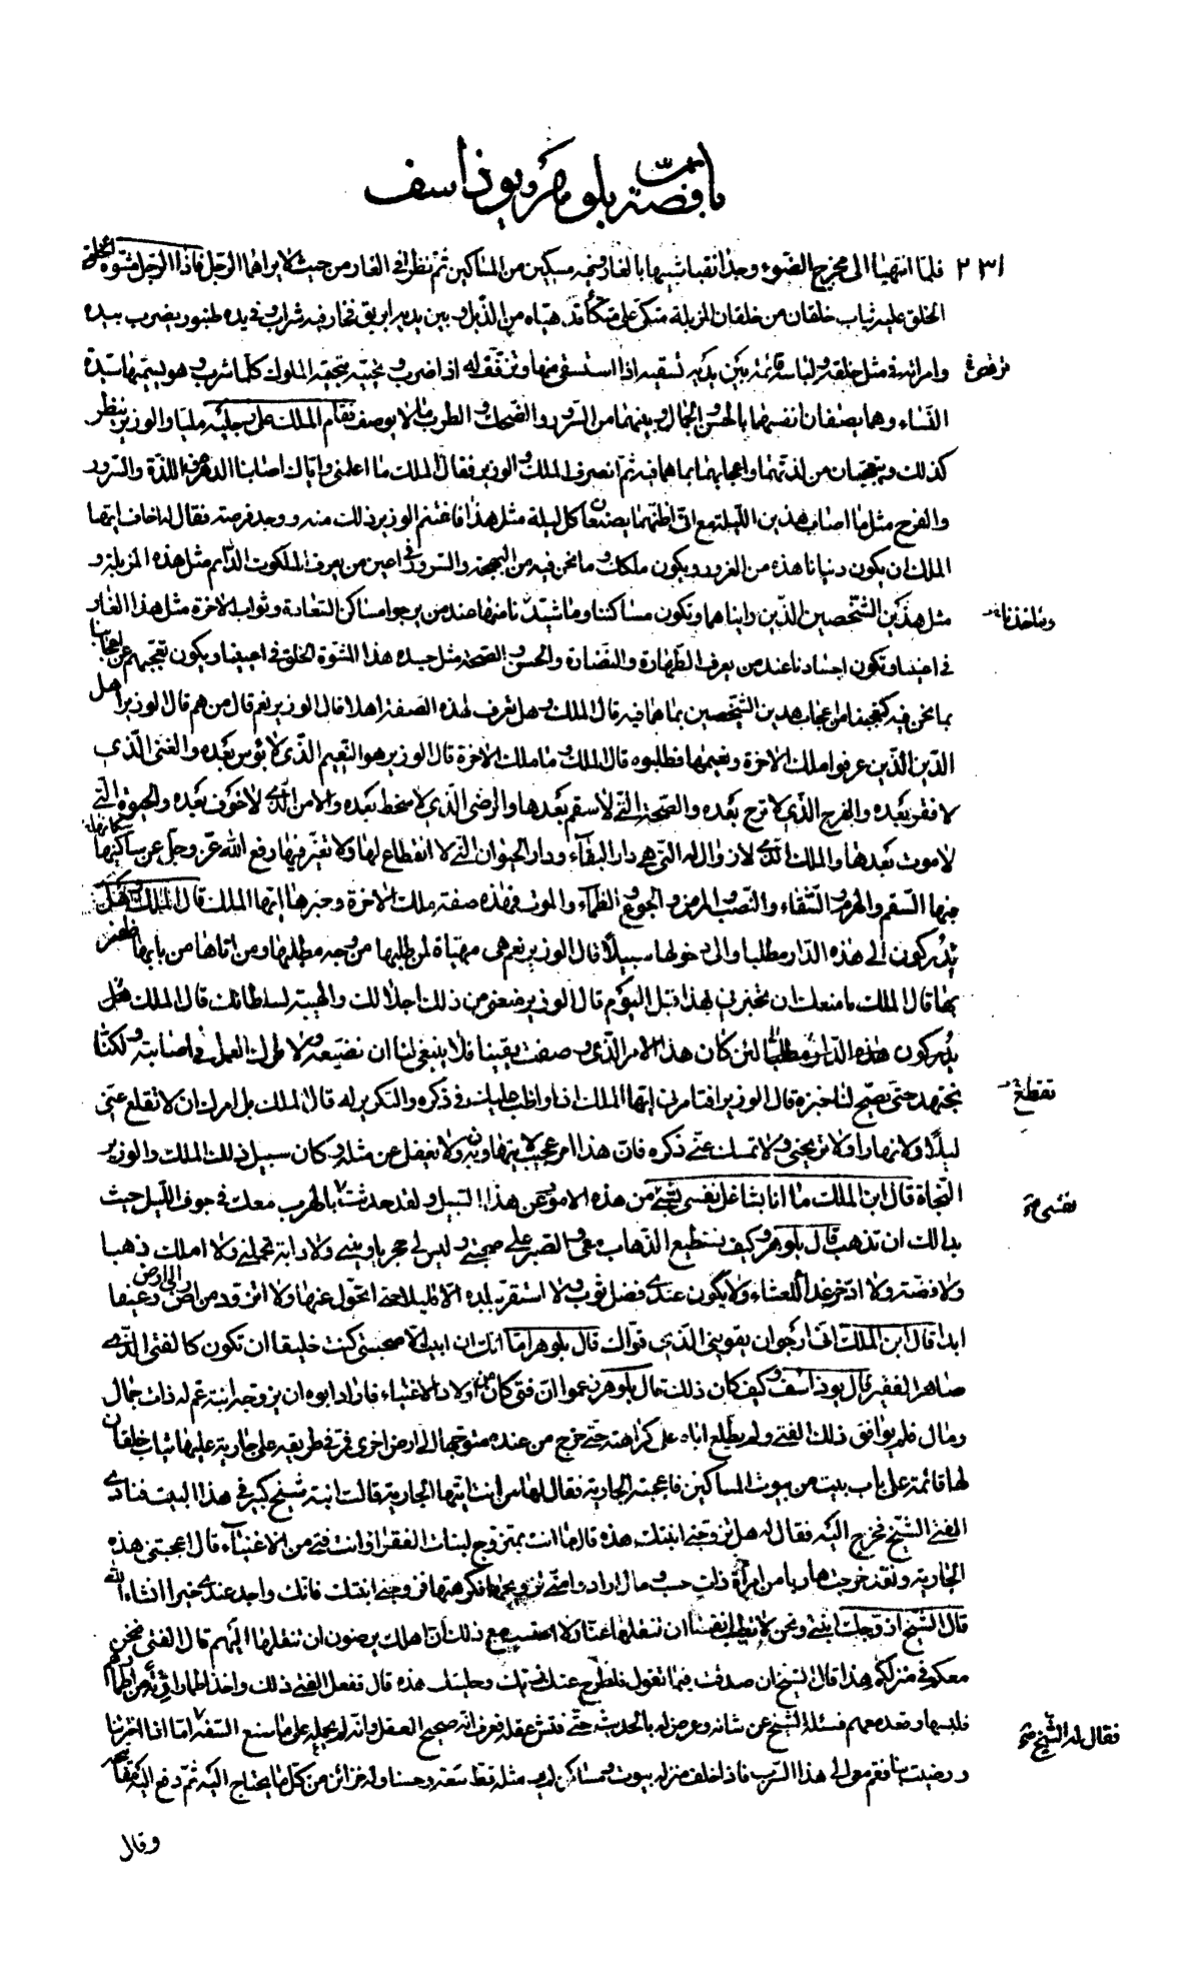 باب قصة بلوهر ويوذاسف
٢٣١ فلما انتهيا الى مخرج الضوء وجدا نقبا شبيها بالغار وفيه مسكين من المساكين ثم نظرا في الغار من حيث لا يراهما الرجل فاذا الرجل مشوه الخلق
الخلق عليه ثياب خلقان من خلقان المزبلة متكئ على متكأ قد هيأه من الزبل وبين يديه ابريق فخار فيه شراب وفي يده طنبور يضرب بيده
وامراته في مثل خلقه ولباسه قائمة بين يديه تسقيه اذا استسقى منها وترقص له اذا ضرب وتحييه بتحية الملوك كلما شرب وهو يسميها سيدة
ترقص
النساء وهما يصفان انفسهما بالحسن والجمال وبينهما من السرور والضحك والطرب ما لا يوصف فقام الملك على رجليه مليا والوزير ينظر
كذلك ويتعجبان من لذتهما واعجابهما بما هما فيه ثم انصرف الملك والوزير فقال الملك ما اعلمني واياك اصابنا الدهر من اللذة والسرور
والفرح مثل ما اصاب هذين الليلة مع اني اظنهما يصنعان كل ليلة مثل هذا فاغتنم الوزير ذلك منه ووجد فرصة فقال له اخاف ايها
الملك ان يكون دنيانا هذه من الغرور ويكون ملكك وما نحن فيه من البهجة والسرور في اعين من يعرف الملكوت الدائم مثل هذه المزبلة و
مثل هذين الشخصين الذين رايناهما وتكون مساكننا وما شيدنا منها عند من يرجو مساكن السعادة وثواب الاخرة مثل هذا الغار
في اعيننا وتكون اجسادنا عند من يعرف الطهارة والنضارة والحسن والصحة مثل جسد هذا المشوة الخلق في اعيننا ويكون تعجبهم عن اعجابنا
بما نحن فيه كتعجبنا من اعجاب هذين الشخصين بما هما فيه قال الملك وهل تعرف لهذه الصفة اهلا قال الوزير نعم قال من هم قال الوزير اهل
الدين الذين عرفوا ملك الاخرة ونعيمها فطلبوه قال الملك وما ملك الاخرة قال الوزير هو النعيم الذي لا بؤس بعده والغنى الذي
لا فقر بعده والفرح الذي لا ترح بعده والصحة التي لا سقم بعدها والرضى الذي لا سخط بعده والامن الذي لا خوف بعده والحيوة التي
لا موت بعدها والملك الذي لا زوال له التي هي دار البقاء ودار الحيوان التي لا انقطاع لها ولا تغير فيها رفع الله عز وجل عن ساكنيها
فيها السقم والهرم والشقاء والنصب والمرض والجوع والظماء والموت فهذه صفة ملك الاخرة وخبرها ايها الملك قال الملك وهل
تدركون الى هذه الدار مطلبا والى دخولها سبيلا قال الوزير نعم هي مهياة لمن طلبها من وجه مطلبها ومن اتاها من بابها ظفر
بها قال الملك ما منعك ان تخبرني بهذا قبل اليوم قال الوزير منعني من ذلك اجلالك والهيبة لسلطانك قال الملك
لئن كان هذا الامر الذي وصفت يقينا فلا ينبغي لنا ان نضيعه ولا نترك العمل في اصابته ولكنا
نجتهد حتى يصح لنا خبره قال الوزير افتامرني ايها الملك ان اواظب عليك في ذكره والتكرير له قال الملك بل امرك ان لا تقلع عني
تقطع
ليلا ولا نهارا ولا تريحني ولا تمسك عني ذكره فان هذا امر عجيب لا يتهاون به ولا يغفل عن مثله وكان سبيل ذلك الملك والوزير
النجاة قال ابن الملك ما انا بشاغل نفسي بشيء من هذه الامور عن هذا السبيل ولقد حدثت بالهرب معك في جوف الليل حيث
نفسي
بدا لك ان تذهب قال بلوهر وكيف تستطيع الذهاب معي والصبر على صحبتي وليس لي حجر ياويني ولا دابة تحملني ولا املك ذهبا
ولا فضة ولا ادخر غداء لعشاء ولا يكون عندي فضل ثوب ولا استقر ببلدة الا قليلا حتى اتحول عنها ولا اتزود من ارض الى ارض رغيفا
ابدا قال ابن الملك اني ارجو ان يقويني الذي قواك قال بلوهر اما انك ان ابيت الا صحبتي كنت خليقا ان تكون كالفتى الذي
صاهر الفقير قال يوذاسف وكيف كان ذلك قال بلوهر زعموا ان فتى كان من اولاد الاغنياء فاراد ابوه ان يزوجه ابنة عم له ذات جمال
ومال فلم يوافق ذلك الفتى ولم يطلع اباه على كراهته حتى خرج من عنده متوجها الى ارض اخرى فمر في طريقه على جارية عليها ثياب خلقان
لها قائمة على باب بيت من بيوت المساكين فاعجبته الجارية فقال لها من انت ايتها الجارية قالت ابنة شيخ كبير في هذا البيت فنادى
الفتى الشيخ فخرج اليه فقال له هل تزوجني ابنتك هذه قال ما انت بمتزوج لبنات الفقراء وانت فتى من الاغنياء قال اعجبتني هذه
الجارية ولقد خرجت هاربا من امرأة ذات حسب ومال ارادوا مني تزويجها فكرهتها فزوجني ابنتك فانك واجد عندي خيرا انشاء الله
قال الشيخ كيف ازوجك ابنتي ونحن لا تطيب انفسنا ان تنقلها عنا ولا احتسب مع ذلك ان اهلك يرضون ان تنقلها اليهم قال الفتى فنحن
معكم في منزلكم هذا قال الشيخ ان صدقت فيما تقول فاطرح عنك زيك وحليتك هذه قال ففعل الفتى ذلك واخذ اطمارا رثة من اطمارهم
فلبسها وقعد معهم فسئله الشيخ عن شانه وعرض له بالحديث حتى فتش عقله فعرف انه صحيح العقل وانه لم يحمله على ما صنع السفه اما اذا اخترتنا
فقال له الشيخ
ورضيت بنا فقم معي الى هذا السرب فاذا خلف منزله بيوت ومساكن لم ير مثلها قط سعة وحسنا وله خزائن من كل ما يحتاج اليه ثم دفع اليه مفاتيحه
وقال